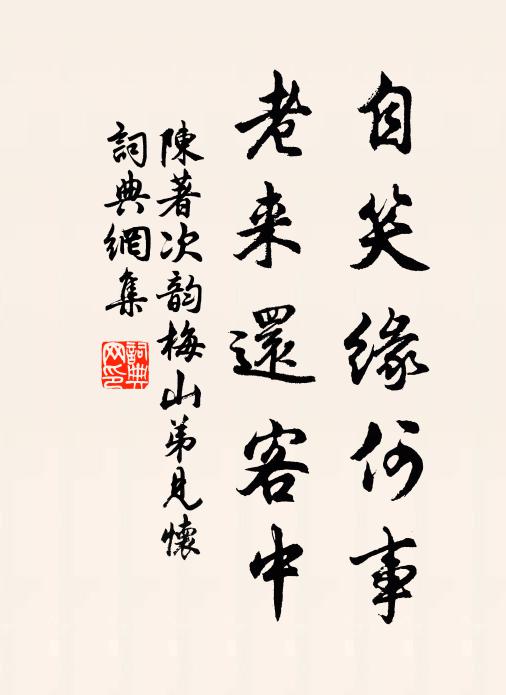 自笑緣何事
老来還客中
陳著次韵梅山弟見懷
詞典網集
詞典
网印